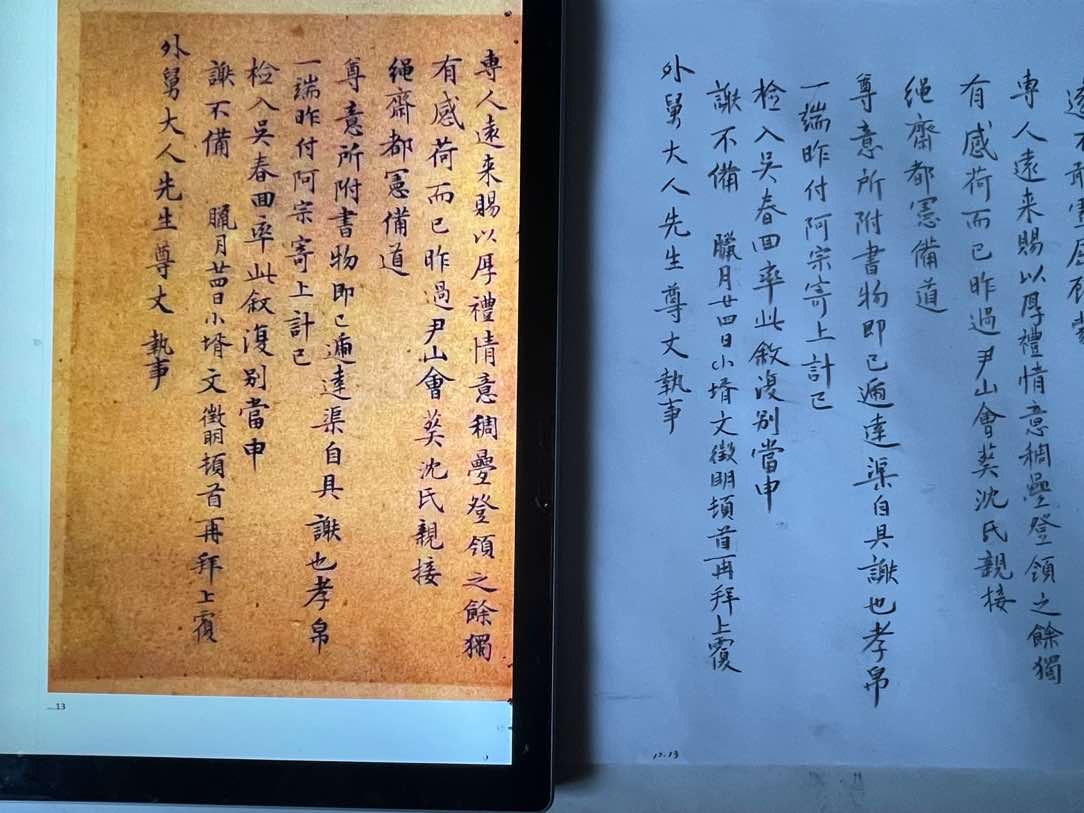 專人遠来賜以厚禮情意稠疊登領之餘獨
有感荷而已昨過尹山會葬沈氏親接
繩齋都憲備道
尊意所附書物即已遍達渠自具謝也孝帛
一端昨付阿宗寄上計已
检入吳春回率此敘復别當申
謝不備 臘月廿四日小壻文徵明頓首再拜上覆
外舅大人先生尊丈 執事
13
專人遠来賜以厚禮情意稠疊登領之餘獨
有感荷而已昨過尹山會葬沈氏親接
繩齋都憲備道
尊意所附書物即已遍達渠自具謝也孝帛
一端昨付阿宗寄上計已
检入吳春回率此敘復别當申
謝不備 臘月廿四日小壻文徵明頓首再拜上覆
外舅大人先生尊丈 執事
12.13